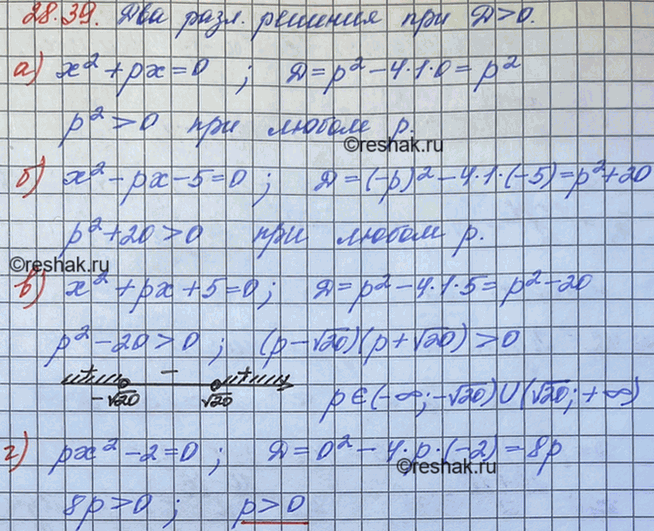 28.39. Два разл. решения при Д>0.
а) x² + px = 0 ; Д = p² - 4·1·0 = p²
p² > 0 при любом p.
©reshak.ru
б) x² - px - 5 = 0 ; Д = (-p)² - 4·1·(-5) = p² + 20
p² + 20 > 0 при любом p.
©reshak.ru
в) x² + px + 5 = 0 ; Д = p² - 4·1·5 = p² - 20
p² - 20 > 0 ; (p - √20)(p + √20) > 0
+ - +
-√20 √20 p ∈ (-∞; -√20) ∪ (√20; +∞)
г) px² - 2 = 0 ; Д = 0² - 4·p·(-2) = 8p
©reshak.ru
8p > 0 ; p > 0